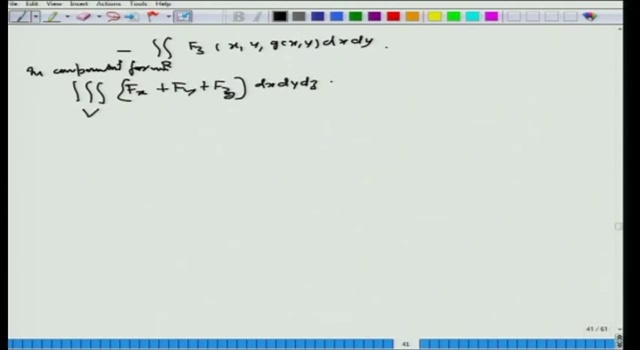 File Edit View Insert Actions Tools Help
— ∬ F₃ (x, y, g(x,y)) dx dy.
R
In component form
∭ {Fₓ + F_y + F_z} dx dy dz.
V
41 / 61
41